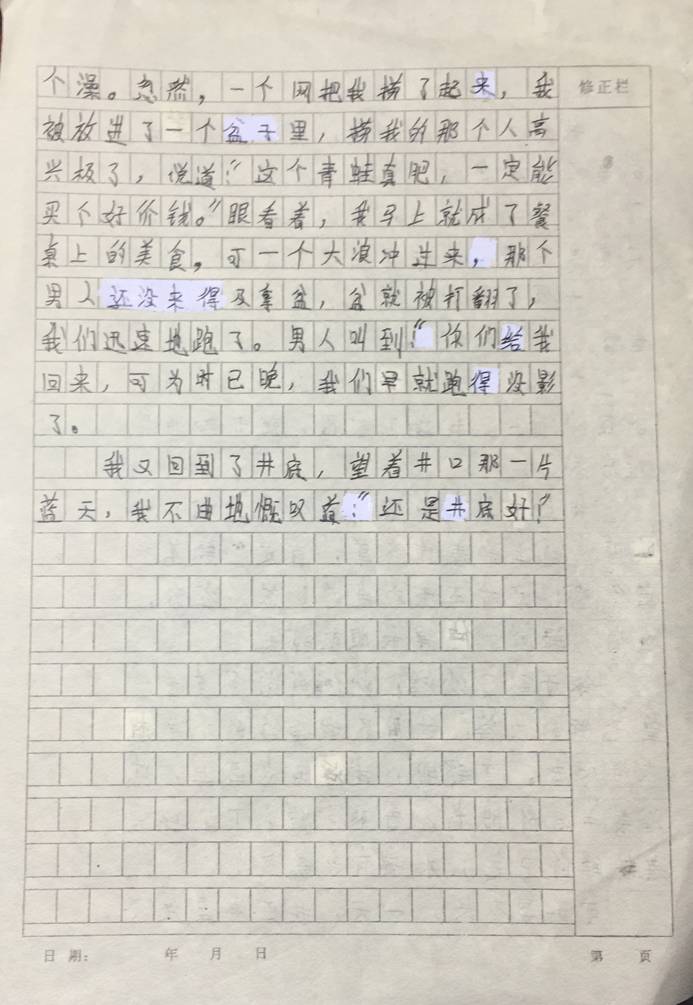 个澡。忽然，一个网把我捞了起来，我
修正栏
被放进了一个盆子里，捞我的那个人高
兴极了，说道：“这个青蛙真肥，一定能
买个好价钱。”眼看着，我马上就成了餐
桌上的美食。可一个大浪冲过来，那个
男人还没来得及拿盆，盆就被打翻了，
我们迅速地跑了。男人叫到：“你们给我
回来，可为时已晚，我们早就跑得没影
了。
我又回到了井底，望着井口那一片
蓝天，我不由地慨叹道：“还是井底好！”
日 期： 年 月 日
第 页